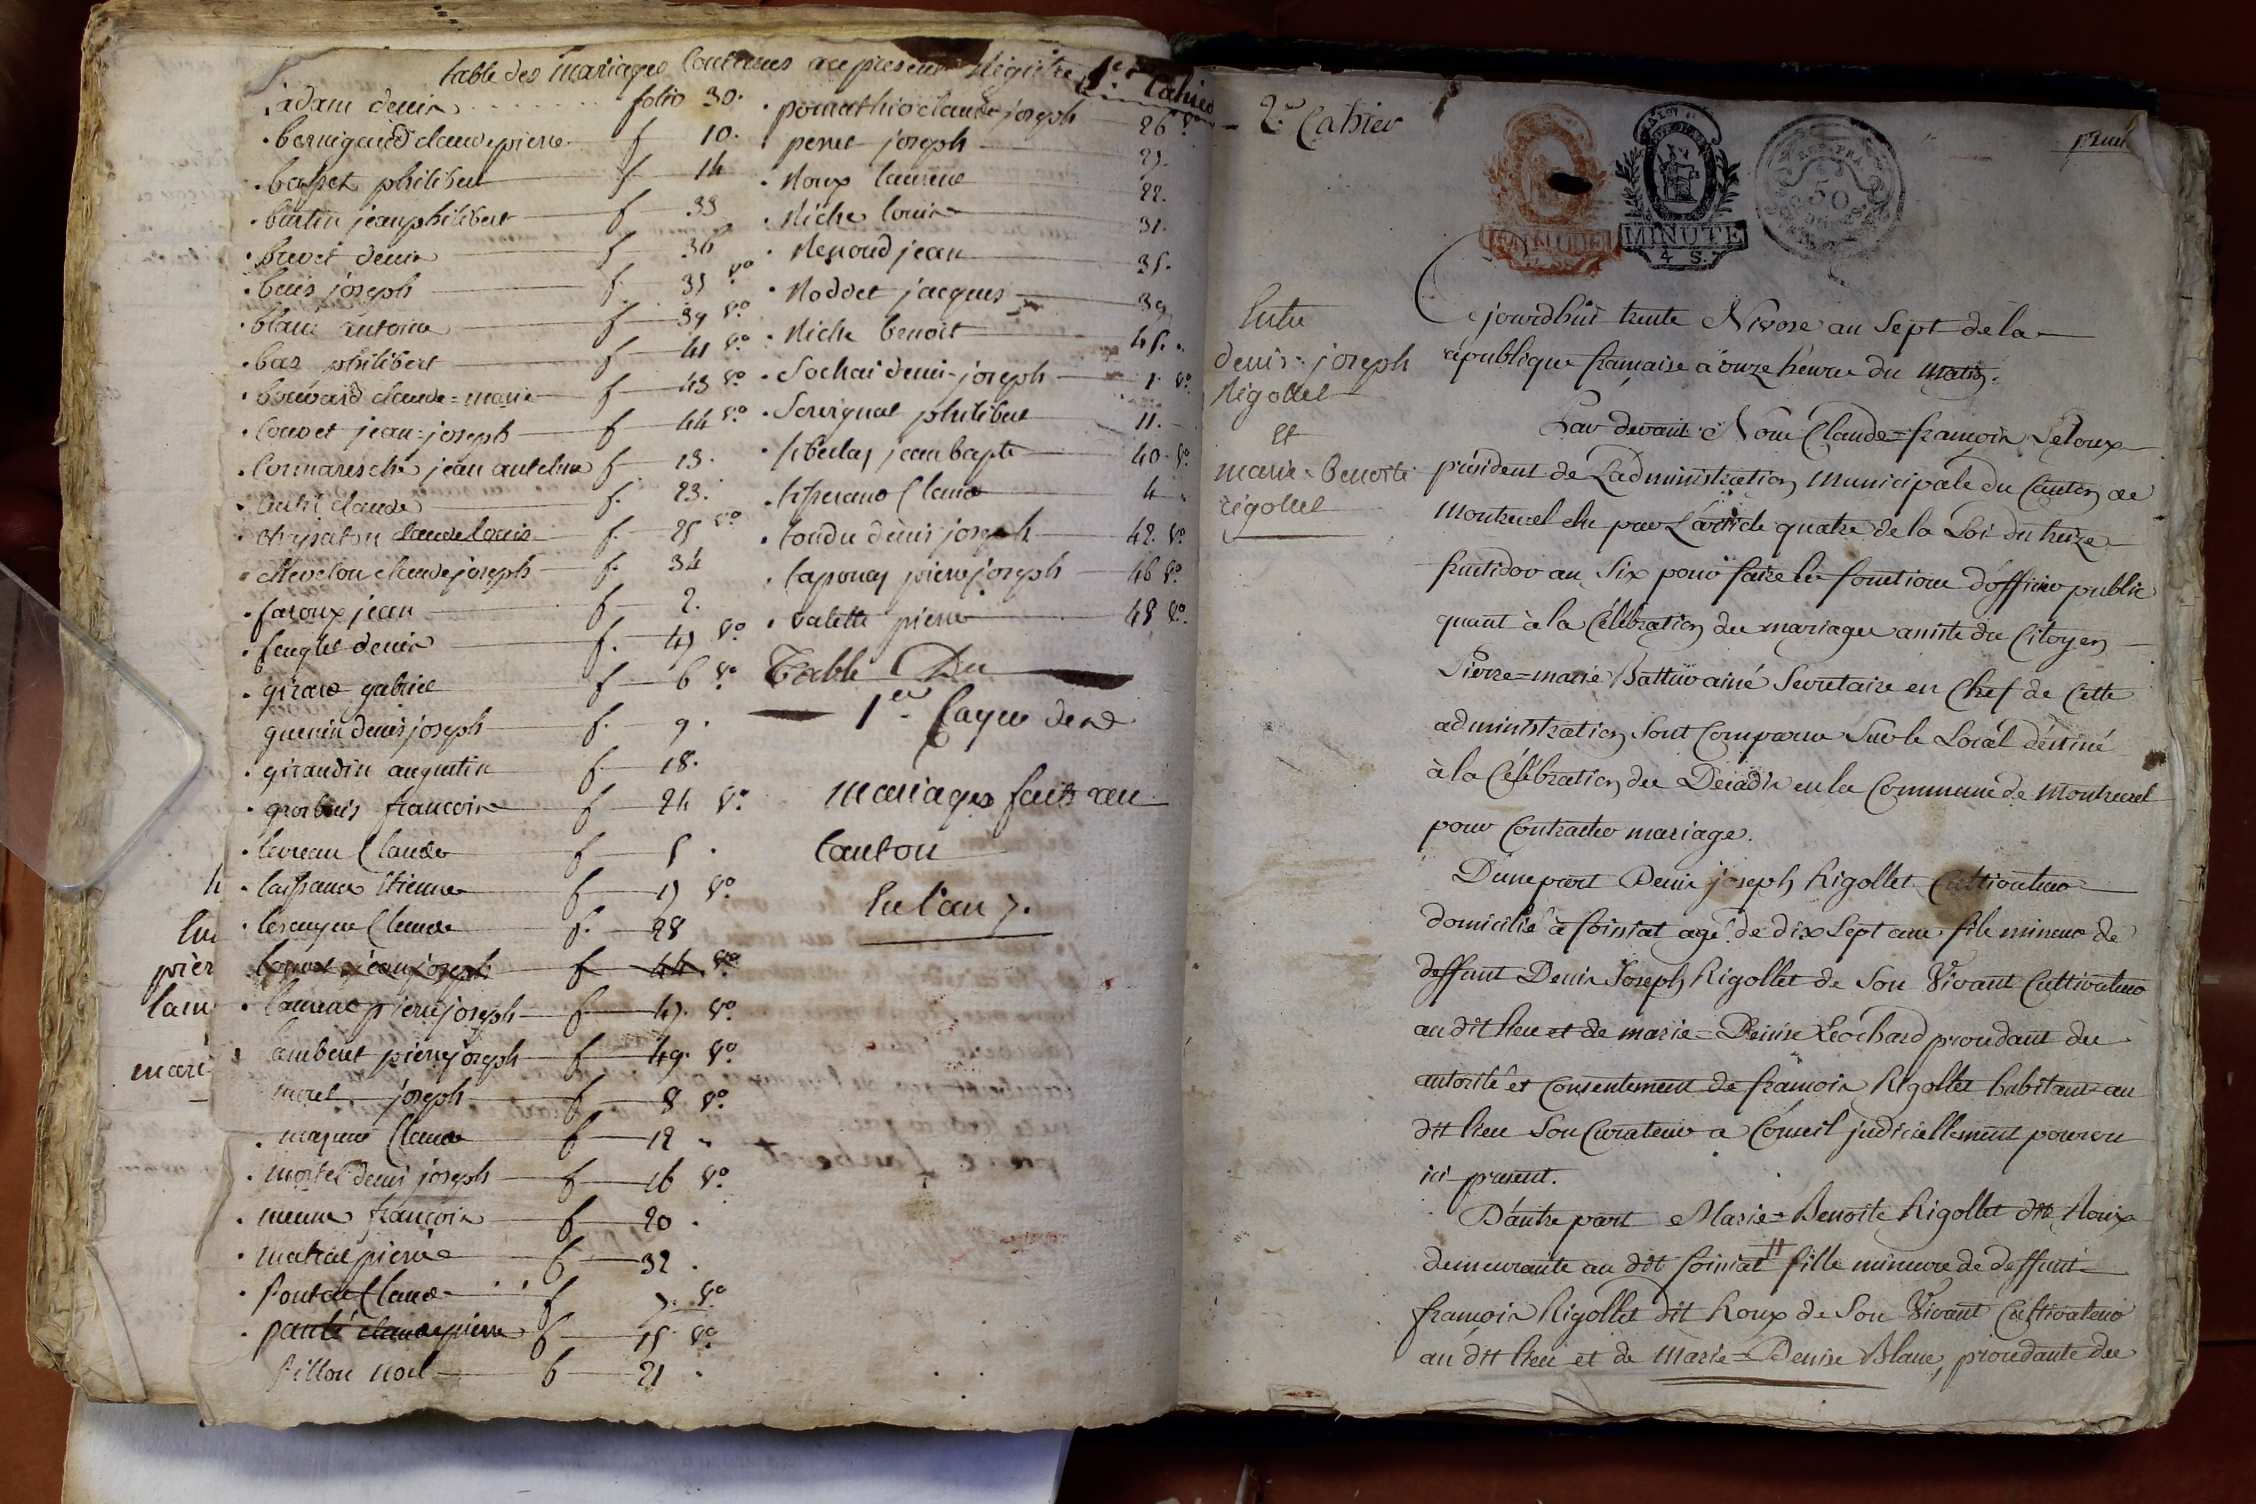 table des mariages Contenus au present Registre 1er Cahier
adam denis folio 30.
bernigaud claude pierre f 10.
bessset philibert f 14
burtin jean philibert f 33
brevet denis f 36
beus joseph f. 35 vo
blanc antoine f 39 vo
bas philibert f 41 vo
bouvard claude=marie f 43 vo
Couvet jean=joseph f 44 vo
Cormareche jean antelme f 13.
claude f. 23.
claude Louis f. 25 vo
Chevelon claude joseph f. 34
faroux jean f 2.
denis f. 47 vo
girard gabriel f 6 vo
guerin denis joseph f. 9.
girandin augustin f 18.
francois f 24 vo
levreau Claude f 5.
laissance Etienne f 17 vo
Claude f. 28
jean joseph f 44 vo
laurent pierre joseph f 47. vo
lamberet pierre joseph f 49. vo
morel joseph f 8 vo
Claude f 12
morel denis joseph f 16 vo
francois f 20.
pierre f 32.
Claude f 7. vo
claude pierre f 15 vo
pillon noel f 21
pomathio claude joseph 26 vo
perret joseph 27.
Roux laurent 22.
Riche louis 31.
Renoud jean 35.
Roddet jacques 39
Riche benoit 45.
Sochai denis=joseph 1. vo
Servignat philibert 11.
jean bapte 40. vo
Claude 4
tondu denis joseph 42. vo
taponay pierre joseph 46 vo
valette pierre 48 vo
Table Du
1er Cayer de
mariages faits au
Canton
en l'an 7.
2e Cahier
MINUTE
4 S.
50
Entre
denis=joseph
Rigollet
Et
marie=Benoite
rigollet
Cejourdhui trente Nivose an Sept de la
république française a onze heures du matin.
Par devant Nous Claude=françois Leloux
président de L'administration Municipale du Canton de
Montrevel élu par L'article quatre de la Loi du treize
fructidor an Six pour faire les fonctions d'officier public
quant à la Célébration des mariages assisté du Citoyen
Pierre=marie ainé Secrétaire en Chef de Cette
administration, Sont Comparus Sur le Local déstiné
à la Célébration des Décadis en la Commune de Montrevel
pour Contracter mariage.
D'une part Denis joseph Rigollet Cultivateur
domicilié à foissiat agé de dix Sept ans fils mineur de
deffunt Denis Joseph Rigollet de Son Vivant Cultivateur
au dit lieu et de marie=Denise Léochard procédant de
autorité et Consentement de françois Rigollet habitant au
dit lieu Son Curateur a Conseil judiciellement pourvu
ici présent.
D'autre part Marie=Benoite Rigollet dit Roux
demeurante au dit foissiat fille mineure de deffunt
françois Rigollet dit Roux de Son Vivant Cultivateur
au dit lieu et de Marie=Denise Blanc, procédante de